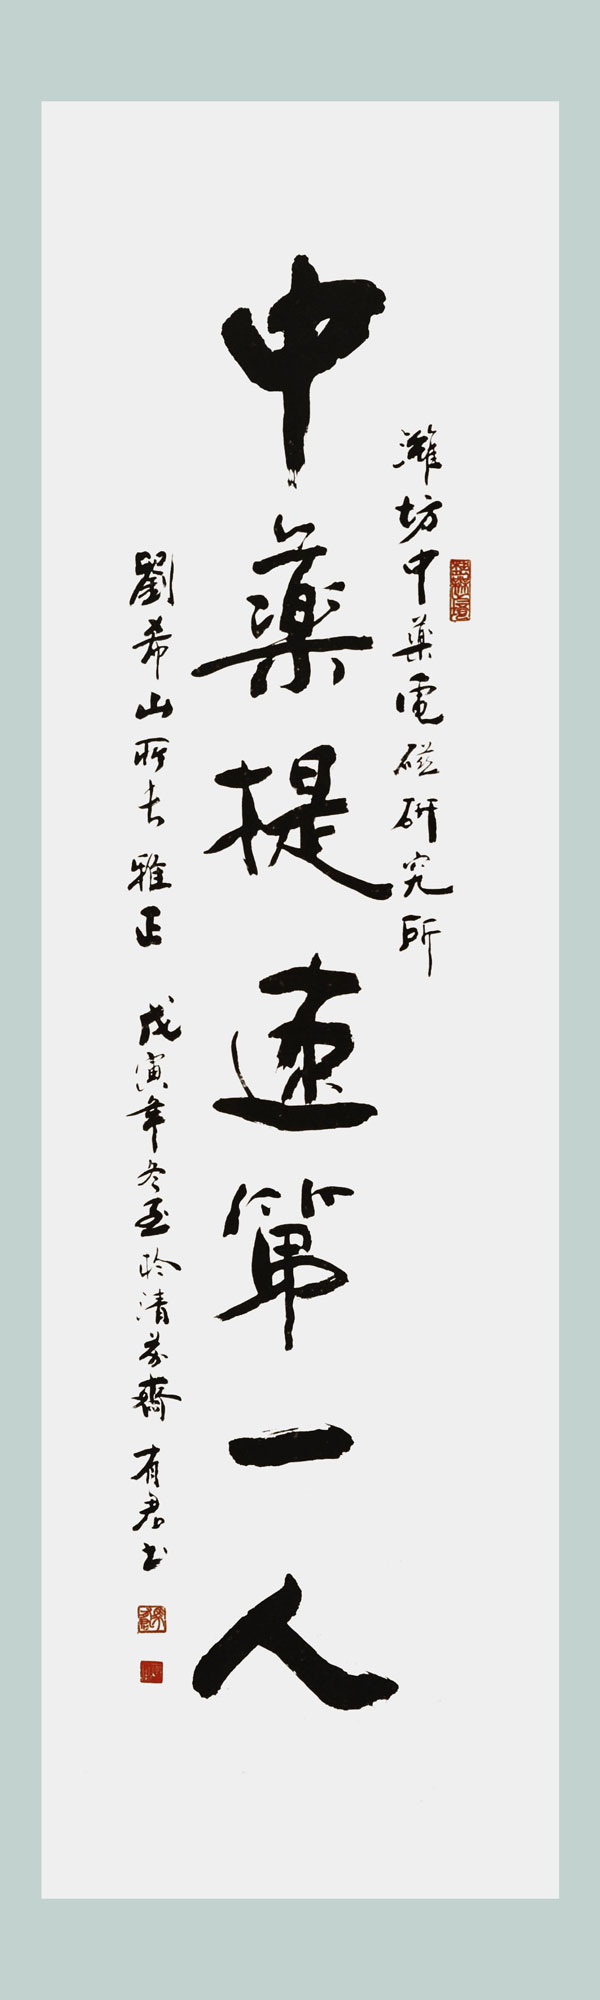 潍坊中药電磁研究所
中藥提速第一人
劉希山所长雅正 戊寅年冬至於清芬齋 有君书